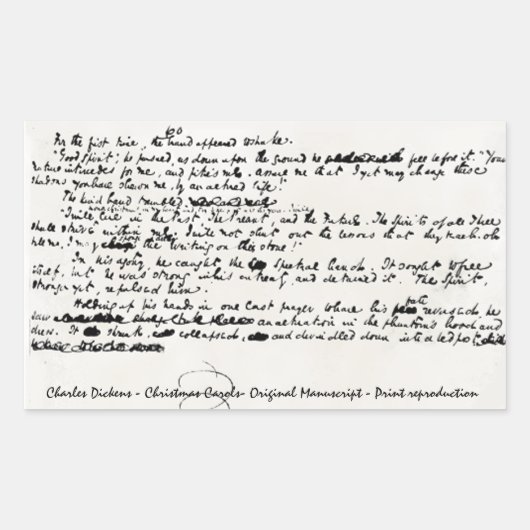 60
For the first time, the hand appeared to shake.
"Good Spirit", he pursued, as down upon the ground he fell before it. "Your
nature intercedes for me, and pities me. Assure me that I yet may change these
shadows you have shewn me, by an altered life!"
The kind hand trembled.
"I will live in the Past, the Present, and the Future. The Spirits of all Three
shall strive within me. I will not shut out the lessons that they teach. Oh
tell me, I may sponge away the writing on this stone!"
In his agony, he caught the spectral hand. It sought to free
itself, but he was strong in his entreaty, and detained it. The Spirit,
stronger yet, repulsed him.
Holding up his hands in one last prayer to have his fate reversed, he
saw an alteration in the phantom's hood and
dress. It shrunk, collapsed, and dwindled down into a bedpost.
Charles Dickens - Christmas Carols- Original Manuscript - Print reproduction